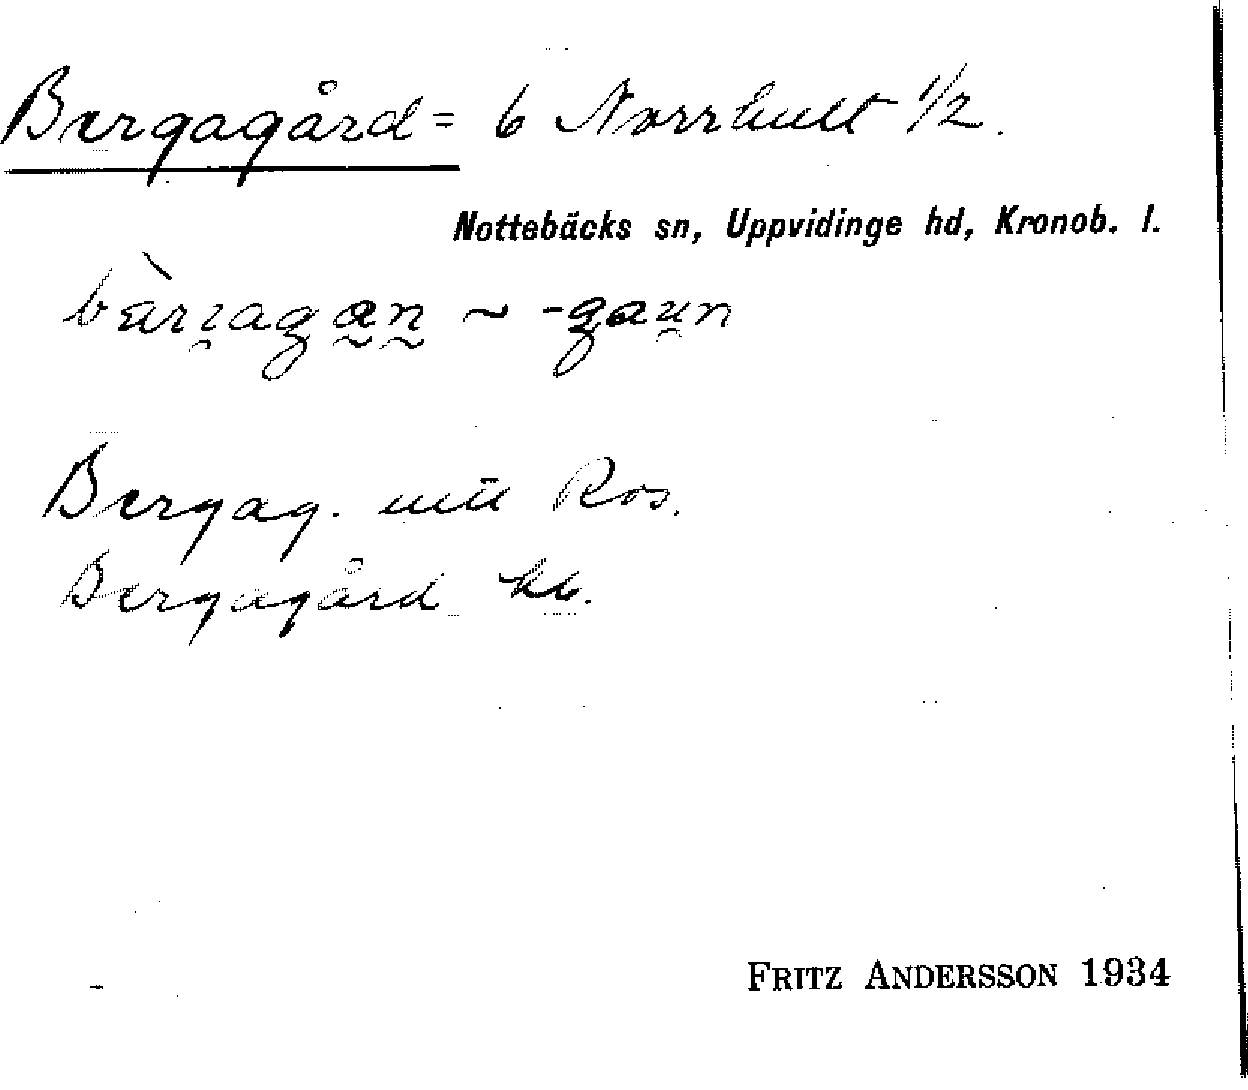 Bergagård = 6 Norrhult 1/2.
Nottebäcks sn, Uppvidinge hd, Kronob. l.
Bergag. utt Ros.
Bergagård kb.
FRITZ ANDERSSON 1934